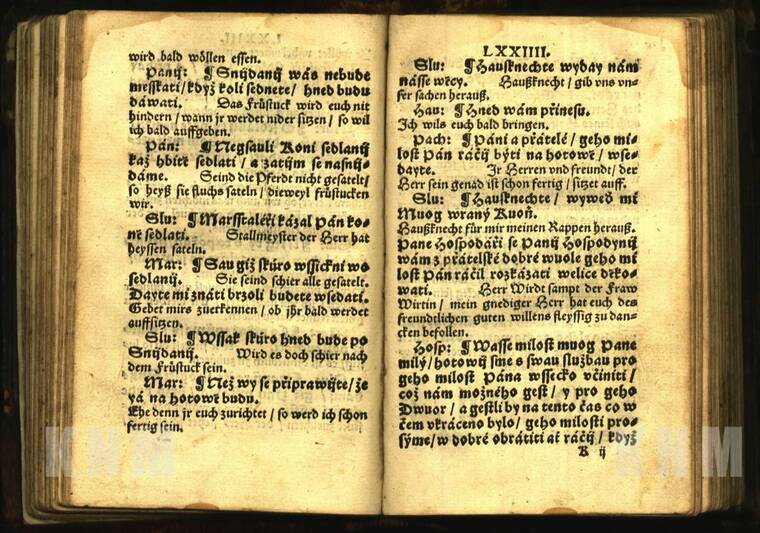 wird bald wöllen essen.
Panij: ¶ Snijdanij wás nebude
messkati / když koli sednete / hned budu
dáwati. Das Frůstuck wird euch nit
hindern / wann jr werdet nider sitzen / so wil
ich bald auffgeben.
Pán: ¶ Negsauli Koni sedlanij
każ hbitě sedlati / a zatijm se nasnij-
dáme. Seind die Pferdt nicht gesatelt /
so heyß sie fluchs sateln / dieweyl frůstucken
wir.
Slu: ¶ Marsstaléři kázal pán ko-
ně sedlati. Stallmeyster der Herr hat
heyssen sateln.
Mar: ¶ Sau giž skůro wssickni wo
sedlanij. Sie seind schier alle gesatelt.
Dayte mi znáti brzoli budete wsedati.
Gebet mirs zuerkennen / ob jhr bald werdet
auffsitzen.
Slu: ¶ Wssak skůro hned bude po
Snijdanij. Wird es doch schier nach
dem Frůstuck sein.
Mar: ¶ Než wy se připrawijte / že
yá na hotowě budu.
Ehe denn jr euch zurichtet / so werd ich schon
fertig sein.
LXXIIII.
Slu: ¶ Hausknechte wyday nám
násse wěcy. Haußknecht / gib vns vn-
ser sachen herauß.
Hau: ¶ Hned wám přinesu.
Ich wils euch bald bringen.
Pach: ¶ Páni a přátelé / geho mi-
lost Pán ráčij býti na hotowě / wse-
dayte. Jr Herren vnd freundt / der
Herr sein genad ist schon fertig / sitzet auff.
Slu: ¶ Hausknechte / wyweď mi
Muog wraný Kuoň.
Haußknecht für mir meinen Rappen herauß.
Pane Hospodáři se Panij Hospodynij
wám z přátelské dobré wuole geho mi
lost Pán ráčil rozkázati welice děko-
wati. Herr Wirdt sampt der Fraw
Wirtin / mein gnediger Herr hat euch des
freundtlichen guten willens fleyssig zu dan-
cken befollen.
Hosp: ¶ Wasse milost muog Pane
milý / hotowij sme s swau službau pro
geho milost Pána wssecko včiniti /
což nám možného gest / y pro geho
Dwuor / a gestli by na tento čas co w
čem vkráceno bylo / geho milosti pro-
sýme / w dobré obrátiti ať ráčij / když
K ij
KNM
KNM